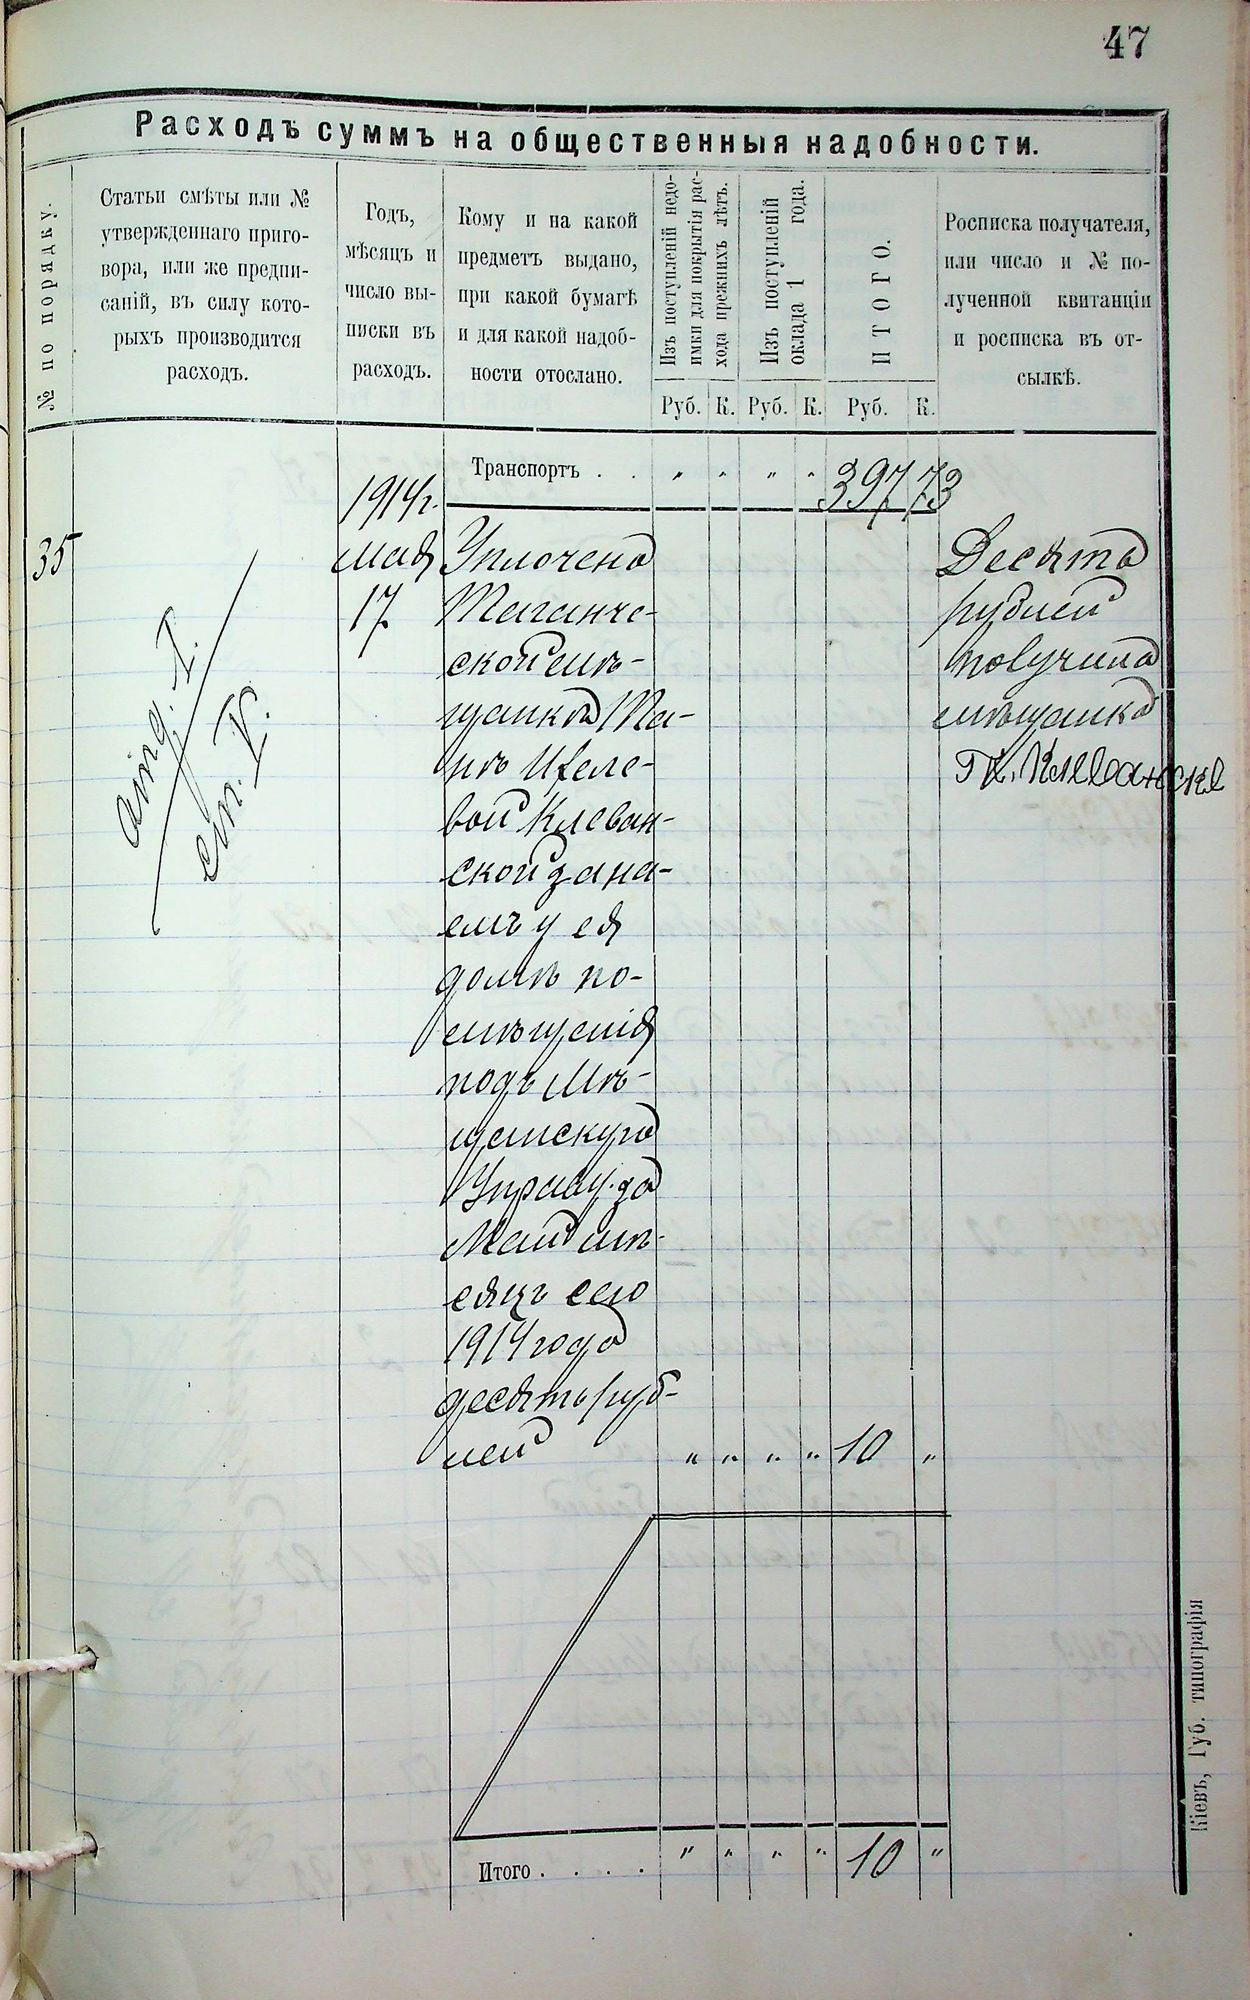 47
Расходъ суммъ на общественныя надобности.
№ по порядку.
Статьи смѣты или №
утвержденнаго приго-
вора, или же предпи-
саній, въ силу кото-
рыхъ производится
расходъ.
Годъ,
мѣсяцъ и
число вы-
писки въ
расходъ.
Кому и на какой
предметъ выдано,
при какой бумагѣ
и для какой надоб-
ности отослано.
Изъ поступленій недо-
имки для покрытія рас-
хода прежнихъ лѣтъ.
Изъ поступленій
оклада 1 года.
ИТОГО.
Росписка получателя,
или число и № по-
лученной квитанціи
и росписка въ от-
сылкѣ.
Руб. К. Руб. К. Руб. К.
Транспортъ . . " " " " 397 73
1914 г.
35 мая Уплочено
17 Таганче-
ской мѣ-
щанкѣ
вой Клеван-
ской за на-
емъ у ея
домѣ по-
мѣщенія
подъ Мѣ-
щанскую
Управу за
Май мѣ-
сяцъ сего
1914 года
десять руб-
лей " " " " 10 "
ст. V.
Десять
рублей
получила
мѣщанка
Итого . . . . " " " " 10 "
Кіевъ, Губ. типографія